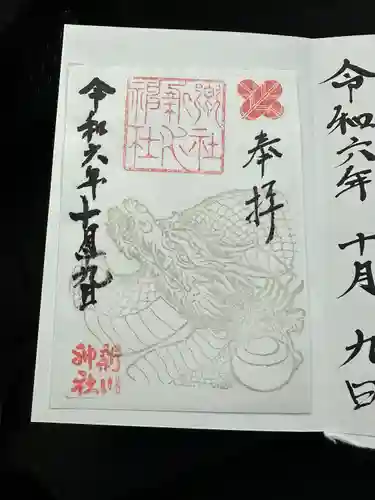 令和六年 十月 九日
奉拝
郷社
新川
神社
令和六年十月九日
新川
神社